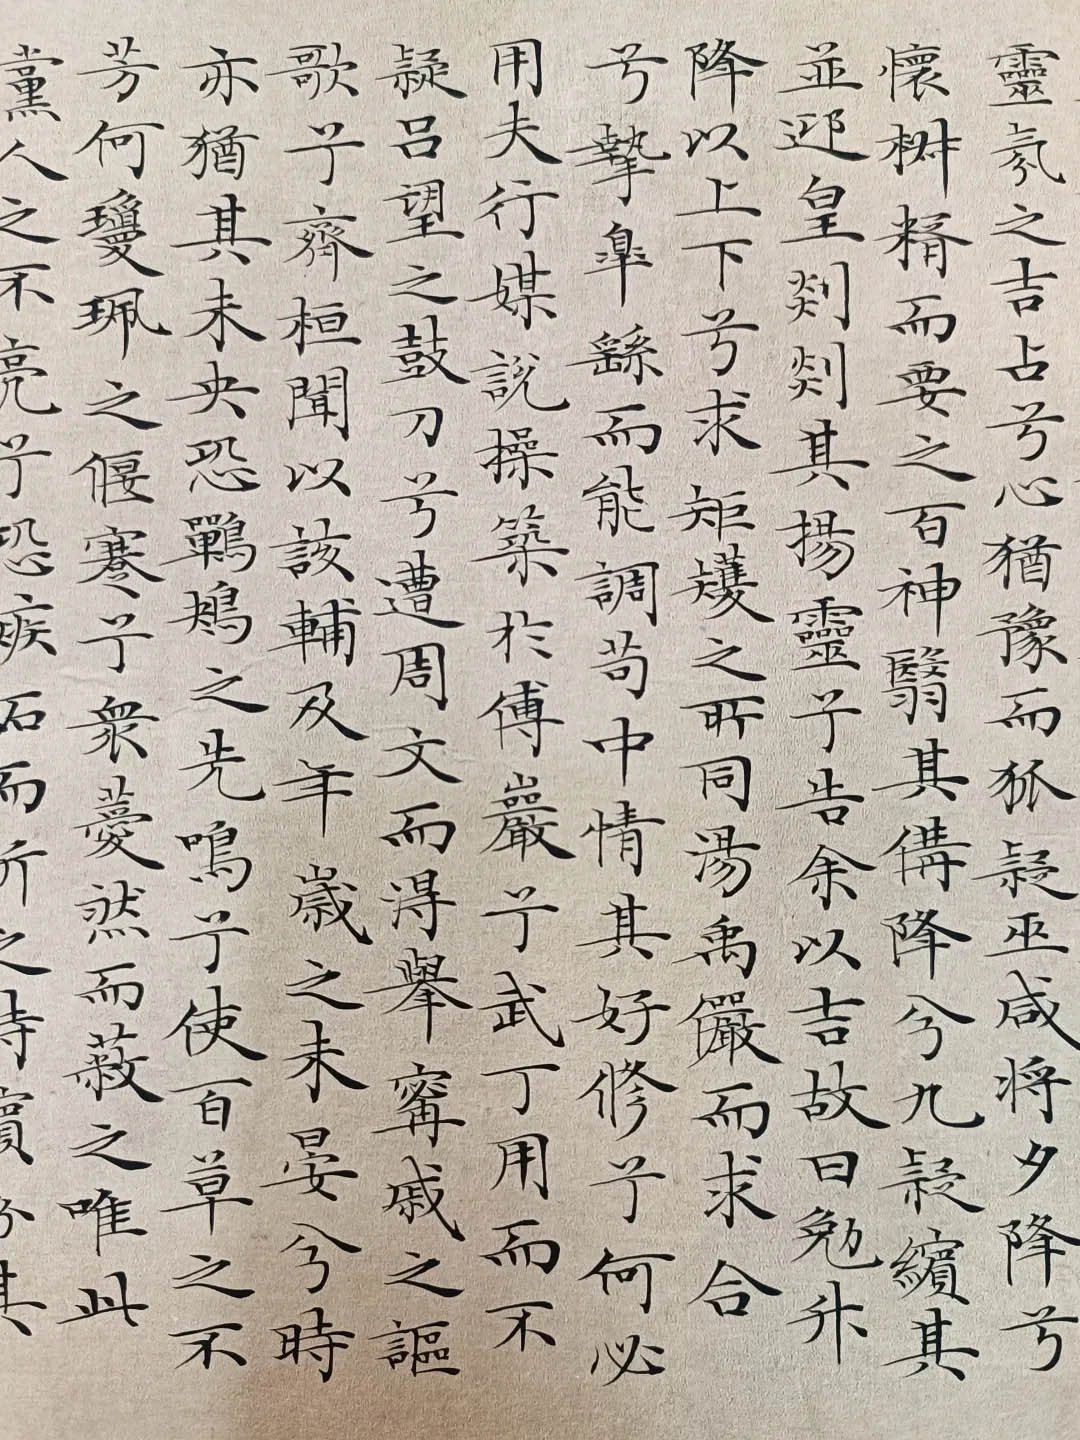 靈氛之吉占兮心猶豫而狐疑巫咸將夕降兮
懷椒糈而要之百神翳其備降兮九疑繽其
並迎皇剡剡其揚靈兮告余以吉故曰勉升
降以上下兮求矩矱之所同湯禹儼而求合
兮摯皋繇而能調苟中情其好脩兮何必
用夫行媒說操築於傅巖兮武丁用而不
疑呂望之鼓刀兮遭周文而得舉甯戚之謳
歌兮齊桓聞以該輔及年歲之未晏兮時
亦猶其未央恐鶗鴂之先鳴兮使百草之不
芳何瓊珮之偃蹇兮衆薆然而蔽之唯此
黨人之不亮兮恐嫉妬而折之時繽紛其